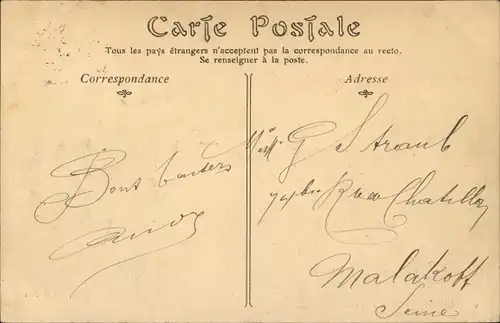 Carte Postale
Tous les pays étrangers n'acceptent pas la correspondance au recto.
Se renseigner à la poste.
Correspondance
Adresse
Bons baisers
G Straub
Rue Chatillon
Malakoff
Seine